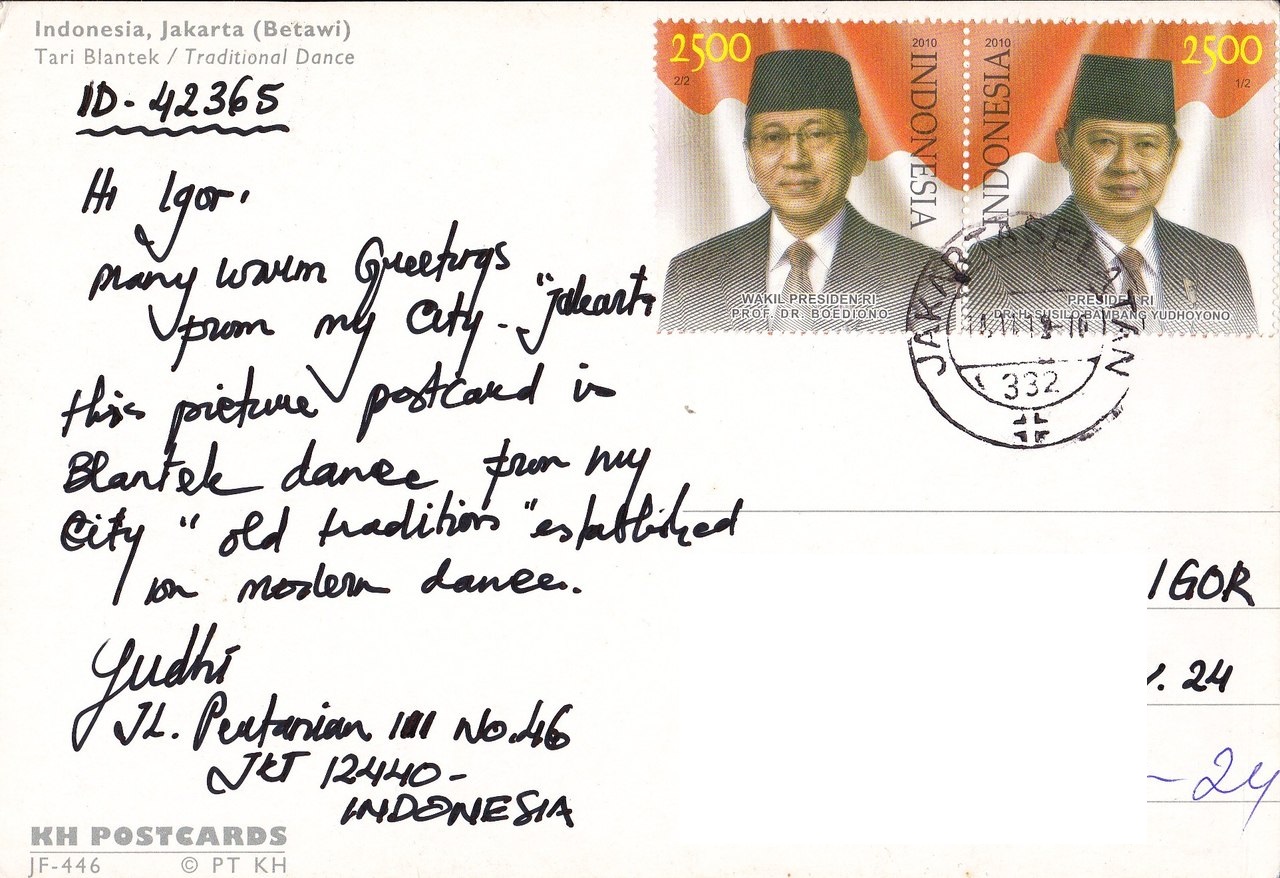 Indonesia, Jakarta (Betawi)
Tari Blantek / Traditional Dance
ID-42365
Hi Igor.
Many warm Greetings
from my City. "Jakarta
this picture postcard is
Blantek dance from my
City "old traditions" established
on modern dance.
Yudhi
JL. Pertanian III No.46
JKT 12440-
INDONESIA
KH POSTCARDS
JF-446 © PT KH
2500
2/2
2010
INDONESIA
WAKIL PRESIDEN RI
PROF. DR. BOEDIONO
2010
INDONESIA
2500
1/2
PRESIDEN RI
DR. H. SUSILO BAMBANG YUDHOYONO
JAKARTASELATAN
332
IGOR
. 24
-24